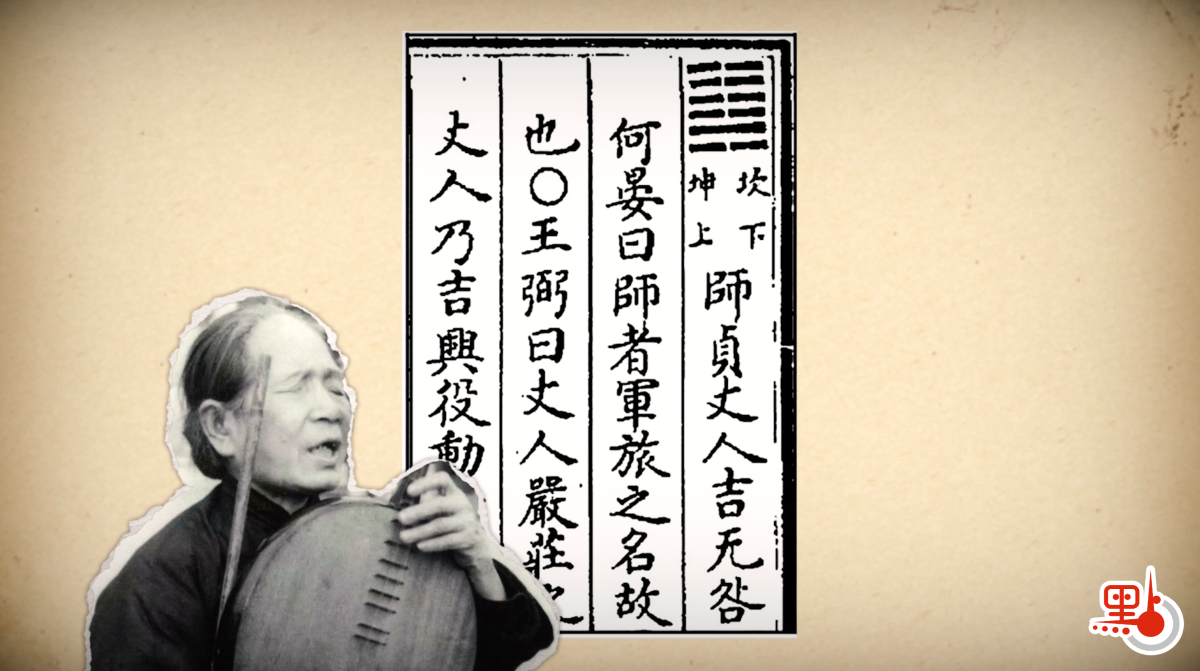 坎下
坤上
師貞丈人吉无咎
何晏曰師者軍旅之名故
也〇王弼曰丈人嚴莊之
丈人乃吉興役動
點